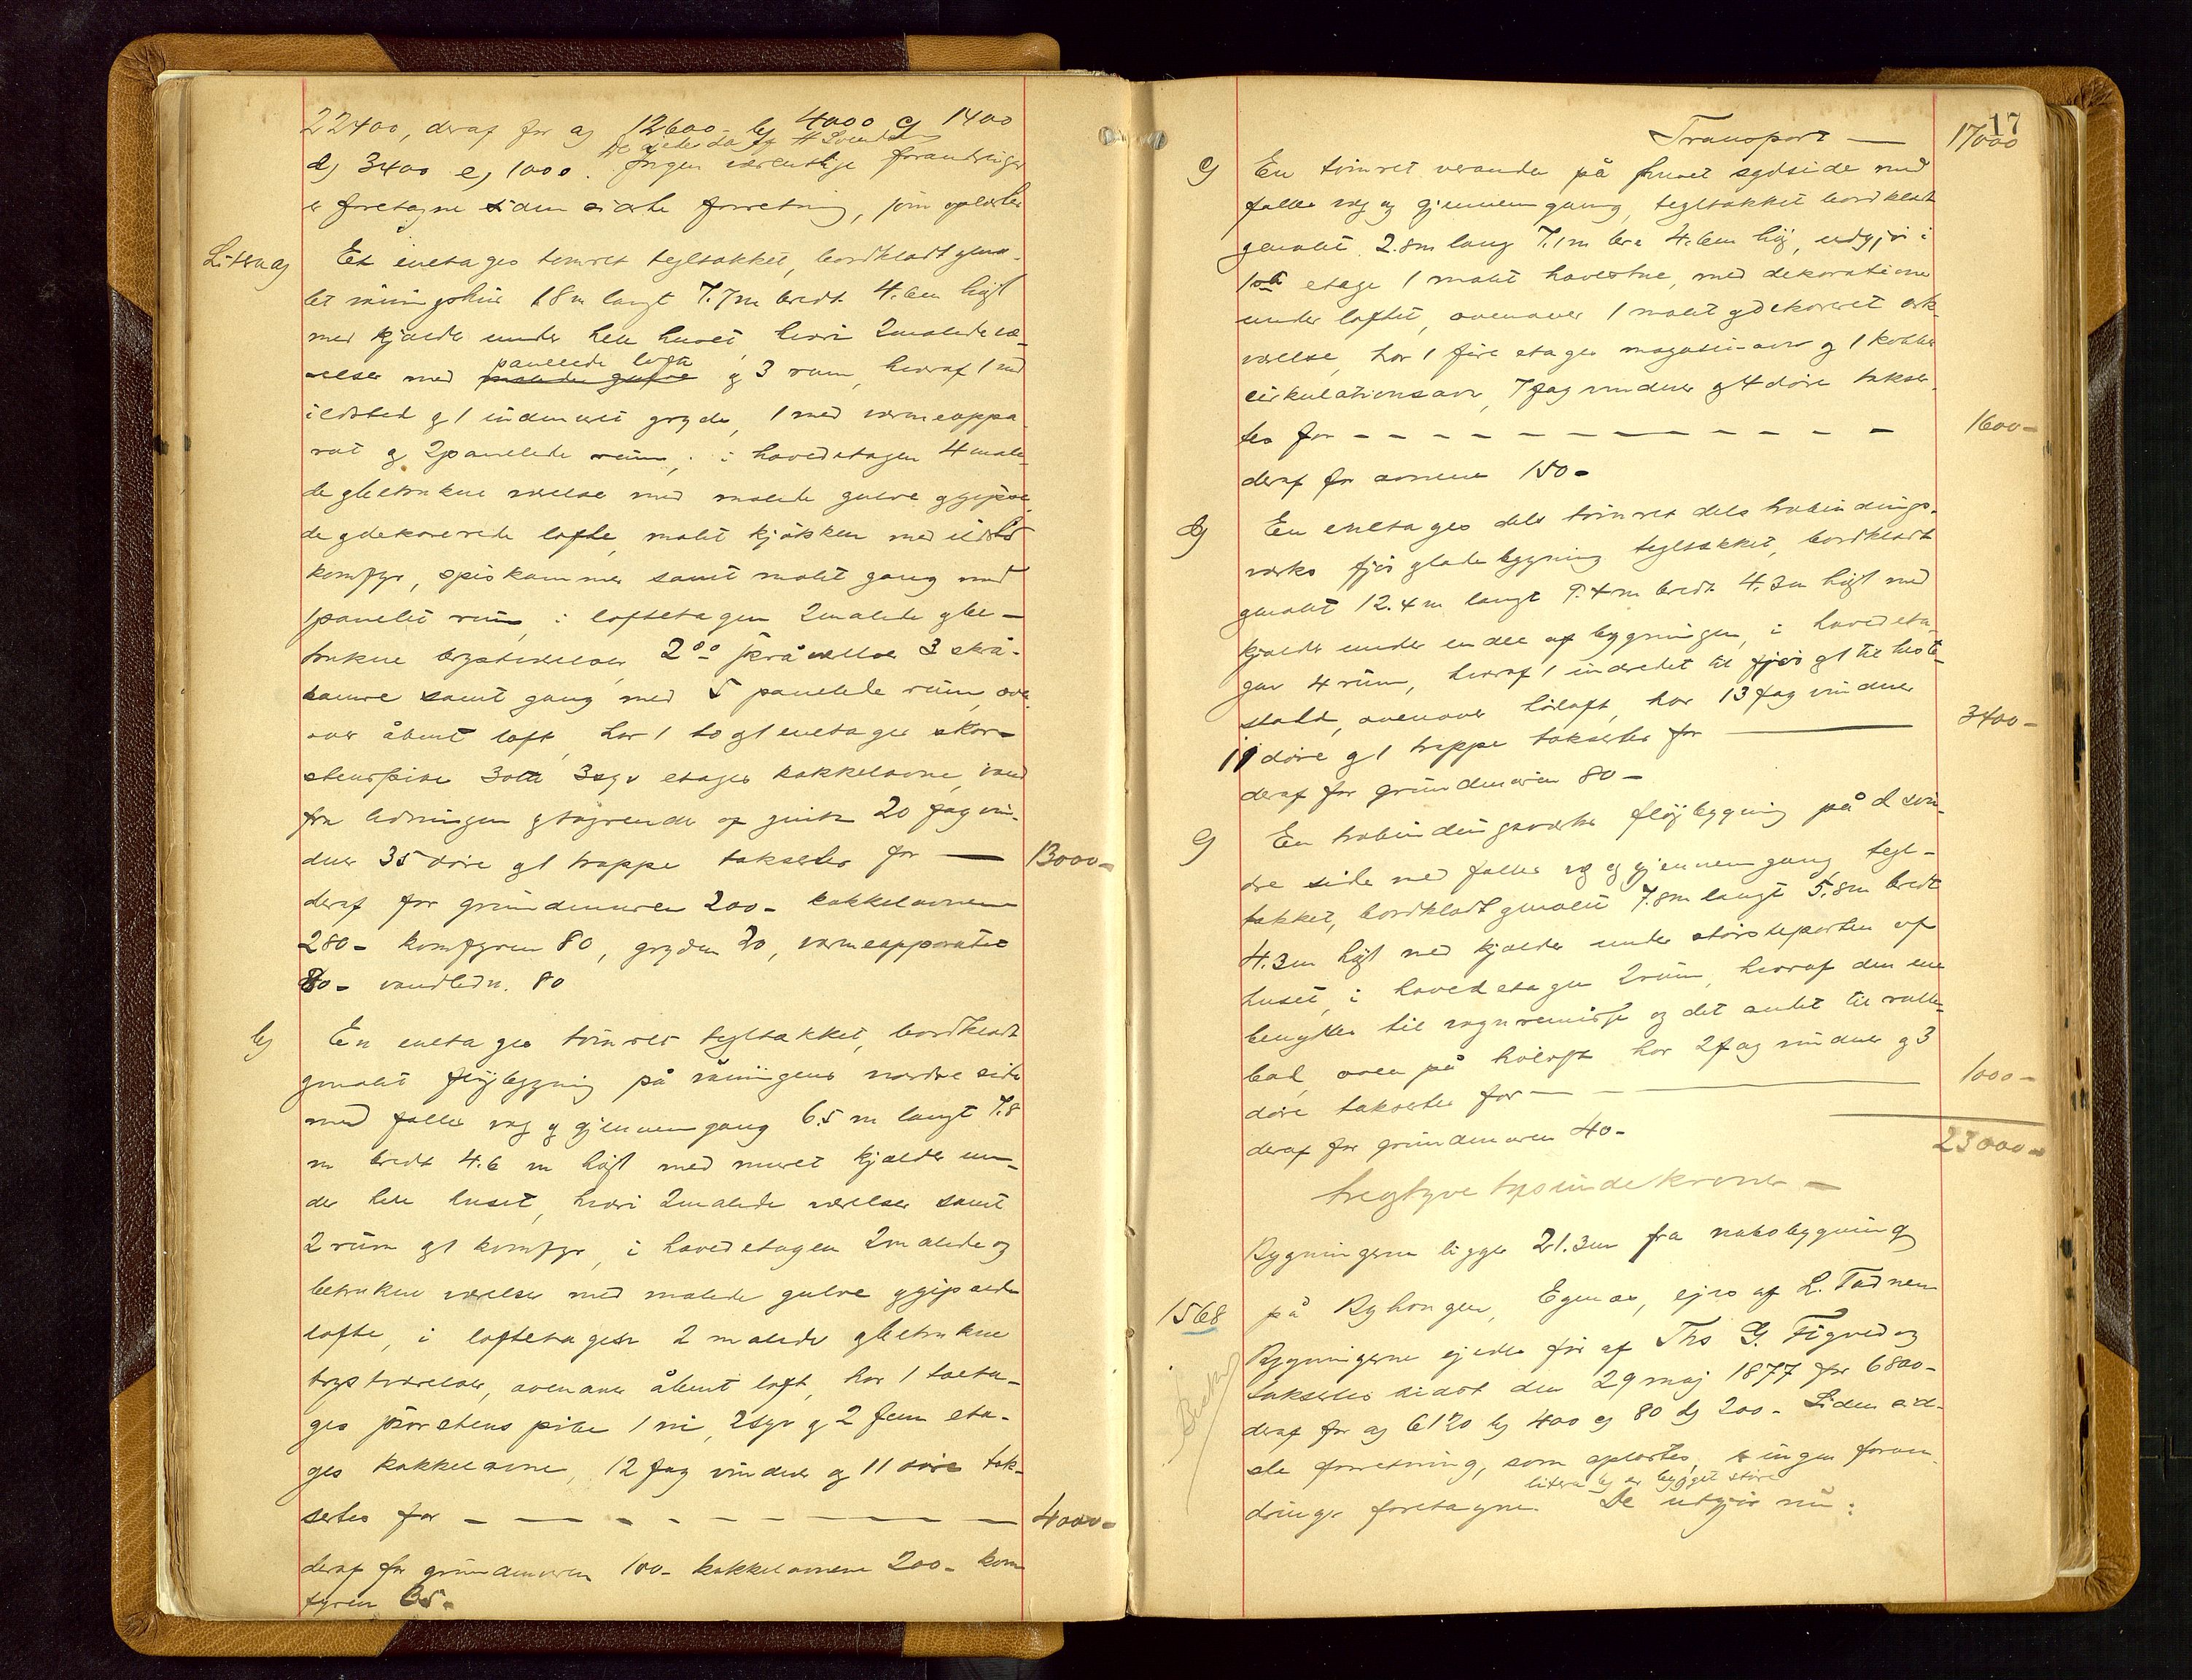 22400, deraf for a) 12600- b) 4000 c) 1400
d) 3400 e) 1000. Ingen væsentlige forandringer
er foretagne siden sidste forretning, som oplæstes
Litra a)
Et enetages tømret tegltakket, bordklædt gma-
let våningshus 18m langt 7.7m bredt 4.6m højt
med kjælder under hele huset, hvori 2 malede væ-
relser med panelede lofte og 3 rum, hvoraf 1 med
ildsted g 1 indemuret gryde, 1 med varmeappa-
rat og 2 panelede rum; i hovedetagen 4 male-
de gbetrukne værelser med malede gulve ggipse-
de gdekorerede lofte, malet kjøkken med ildsted
komfyr, spiskammer samt malet gang med
1 panelet rum, i loftetagen 2 malede gbe-
trukne brystværelser, 2 skråværelser 3 skrå-
kamre samt gang med 5 panelede rum, oven-
over åbent loft, har 1 to g 1 enetages skor-
stenspibe 3 otte 3 syv etages kakkelovne, vand
fra ledningen gtagrender af zink 20 fag vin-
duer 35 døre g 1 trappe takseres for — 13000-
deraf for grundmuren 200- kakkelovnene
280- komfyren 80, gryden 20, varmeapparatet
80- vandledn. 80
b)
En enetages tømret tegltakket, bordklædt
gmalet fløjbygning på våningens nordre side
med fælles væg og gjennemgang 6.5 m langt 7.8
m bredt 4.6 m højt med muret kjælder un-
der hele huset, hvori 2 malede værelser samt
2 rum g 1 komfyr, i hovedetagen 2 malede og
betrukne værelser med malede gulve ggipsede
lofte, i loftetagen 2 malede gbetrukne
brystværelser, ovenover åbent loft, har 1 toeta-
ges skorstenspibe 1 ni, 2 syv g 2 fem eta-
ges kakkelovne, 12 fag vinduer og 11 døre tak-
seres for — 4000-
deraf for grundmuren 100- kakkelovnene 200- kom-
fyren 65-
17
Transport — 17000
c)
En tømret veranda på huset sydside med
fælles væg og gjennemgang, tegltakket bordklædt
gmalet 2.8m lang 7.1m bre 4.6m høj, udgjør i
1ste etage 1 malet havestue, med dekorationer
under loftet, ovenover 1 malet gdekoreret ark-
værelse, har 1 fire etages magasinovn g 1 kobber
cirkulationsovn, 7 fag vinduer g 4 døre takse-
res for — 1600-
deraf for ovnene 150-
d)
En enetages dels tømret dels trabindings-
værks fjøs gladebygning tegltakket, bordklædt
gmalet 12.4 m langt 9.4m bredt 4.3m højt med
kjælder under en del af bygningen, i hovedeta-
gen 4 rum, hvoraf 1 indredet til fjøs g 1 til heste-
stald, ovenover høloft, har 13 fag vinduer
11 døre g 1 trappe takseres for — 3400-
deraf for grundmuren 80-
e)
En trabindingsværks fløjbygning på d søn-
dre side med fælles væg og gjennemgang, tegl-
takket, bordklædt gmalet 7.8m langt 5.8m bredt
4.3m højt med kjælder under størsteparten af
huset, i hovedetagen 2 rum, hvoraf den ene
benyttes til vognremisse og det andet til rulle-
bod, oven på høloft har 2 fag vinduer g 3
døre takseres for — 1000-
deraf for grundmuren 40-
23000-
tregtyve tusindekroner —
Bygningerne ligger 21.3m fra nabobygning
1568
på Byhaugen, Egenæs, ejes af L. Tadnem
Bygningerne ejedes før af Ths G. Figved og
takseredes sidst den 29 maj 1877 for 6800-
deraf for a) 6120 b) 400 c) 80 d) 200- Siden sid-
ste forretning, som oplæstes, er ingen foran-
litra b) er bygget større
dringer foretagne. De udgjør nu: